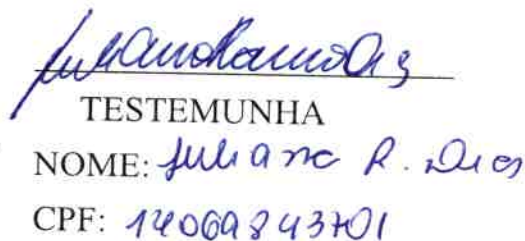 TESTEMUNHA
NOME: Juliana R. Dias
CPF: 14069843701